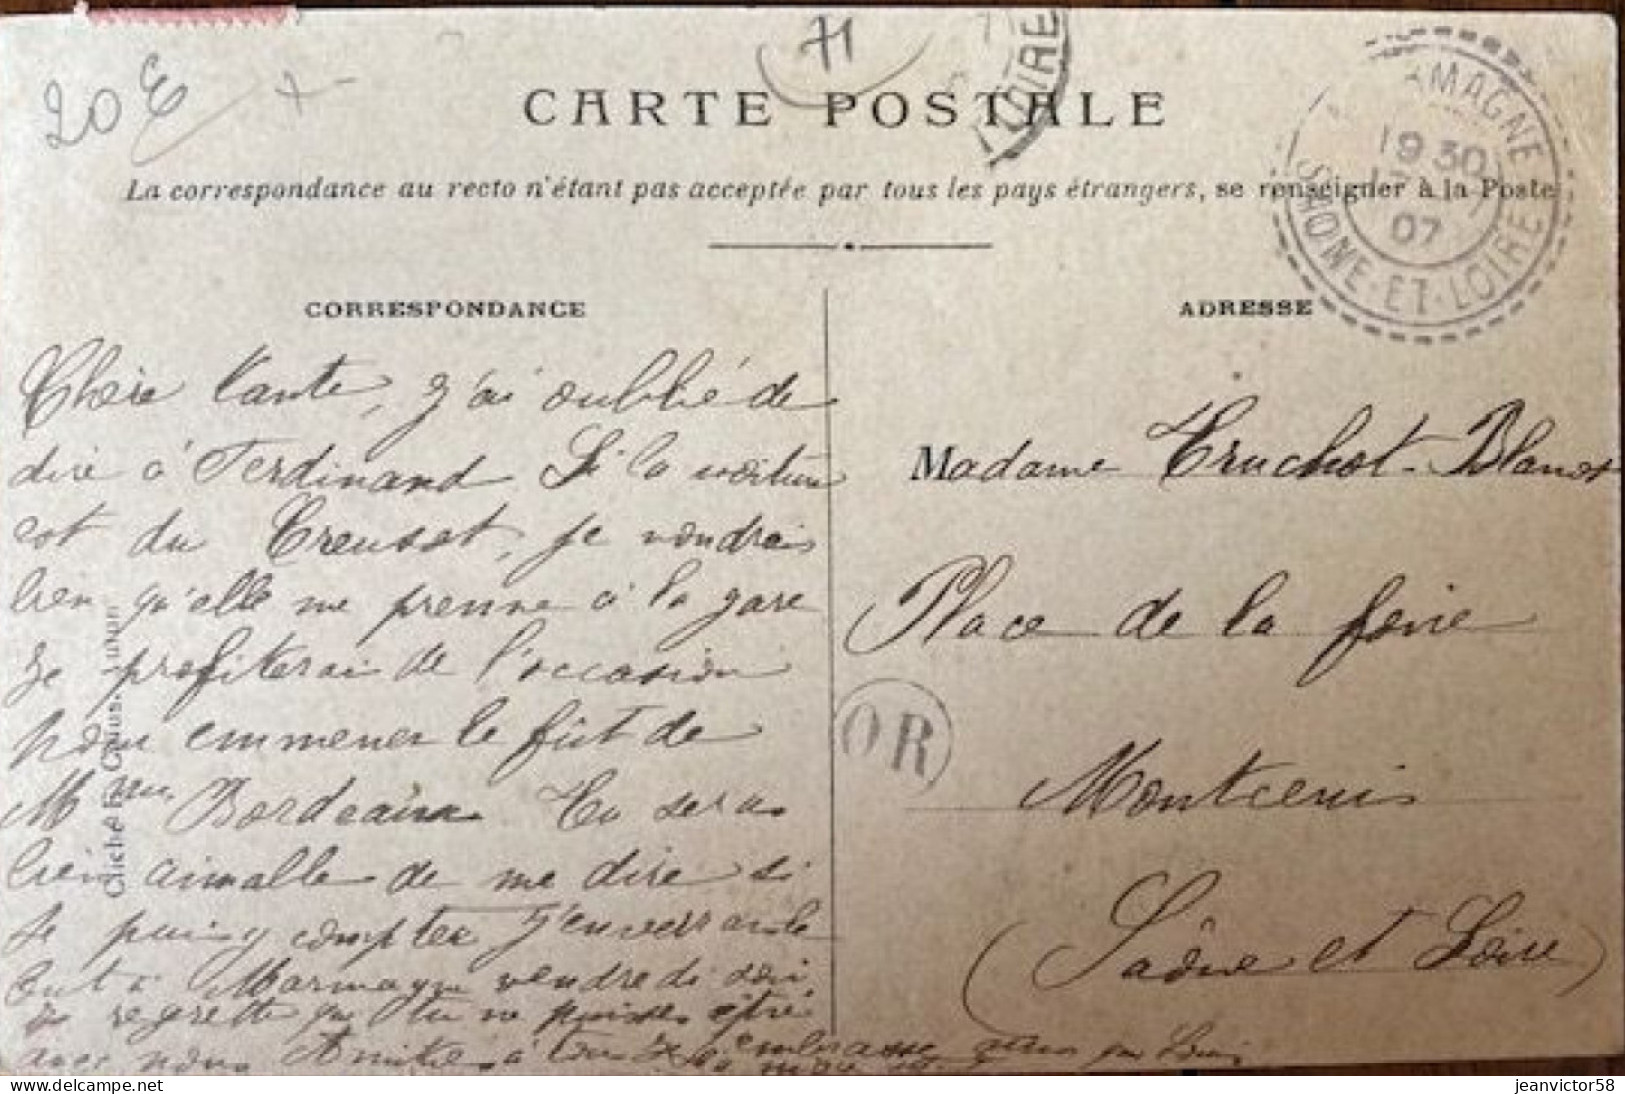 20 €
71
CARTE POSTALE
LOIRE
MAGNE
19 30
07
SAONE-ET-LOIRE
La correspondance au recto n'étant pas acceptée par tous les pays étrangers, se renseigner à la Poste
CORRESPONDANCE
Chère Tante, j'ai oublié de
dire à Ferdinand Si la voiture
est du Creusot, je voudrais
bien qu'elle me prenne à la gare
je profiterai de l'occasion
pour emmener le fût de
Mme Bordeaux. Tu seras
bien aimable de me dire si
je puis y compter J'enverrai le
tout à Marmagne vendredi soir
je regrette que tu ne puisses être
avec nous Amitiés à tous
embrasse
Cliché Autun
ADRESSE
Madame Truchot-Blanot
Place de la foire
OR
Montcenis
(Saône et Loire)
jeanvictor58